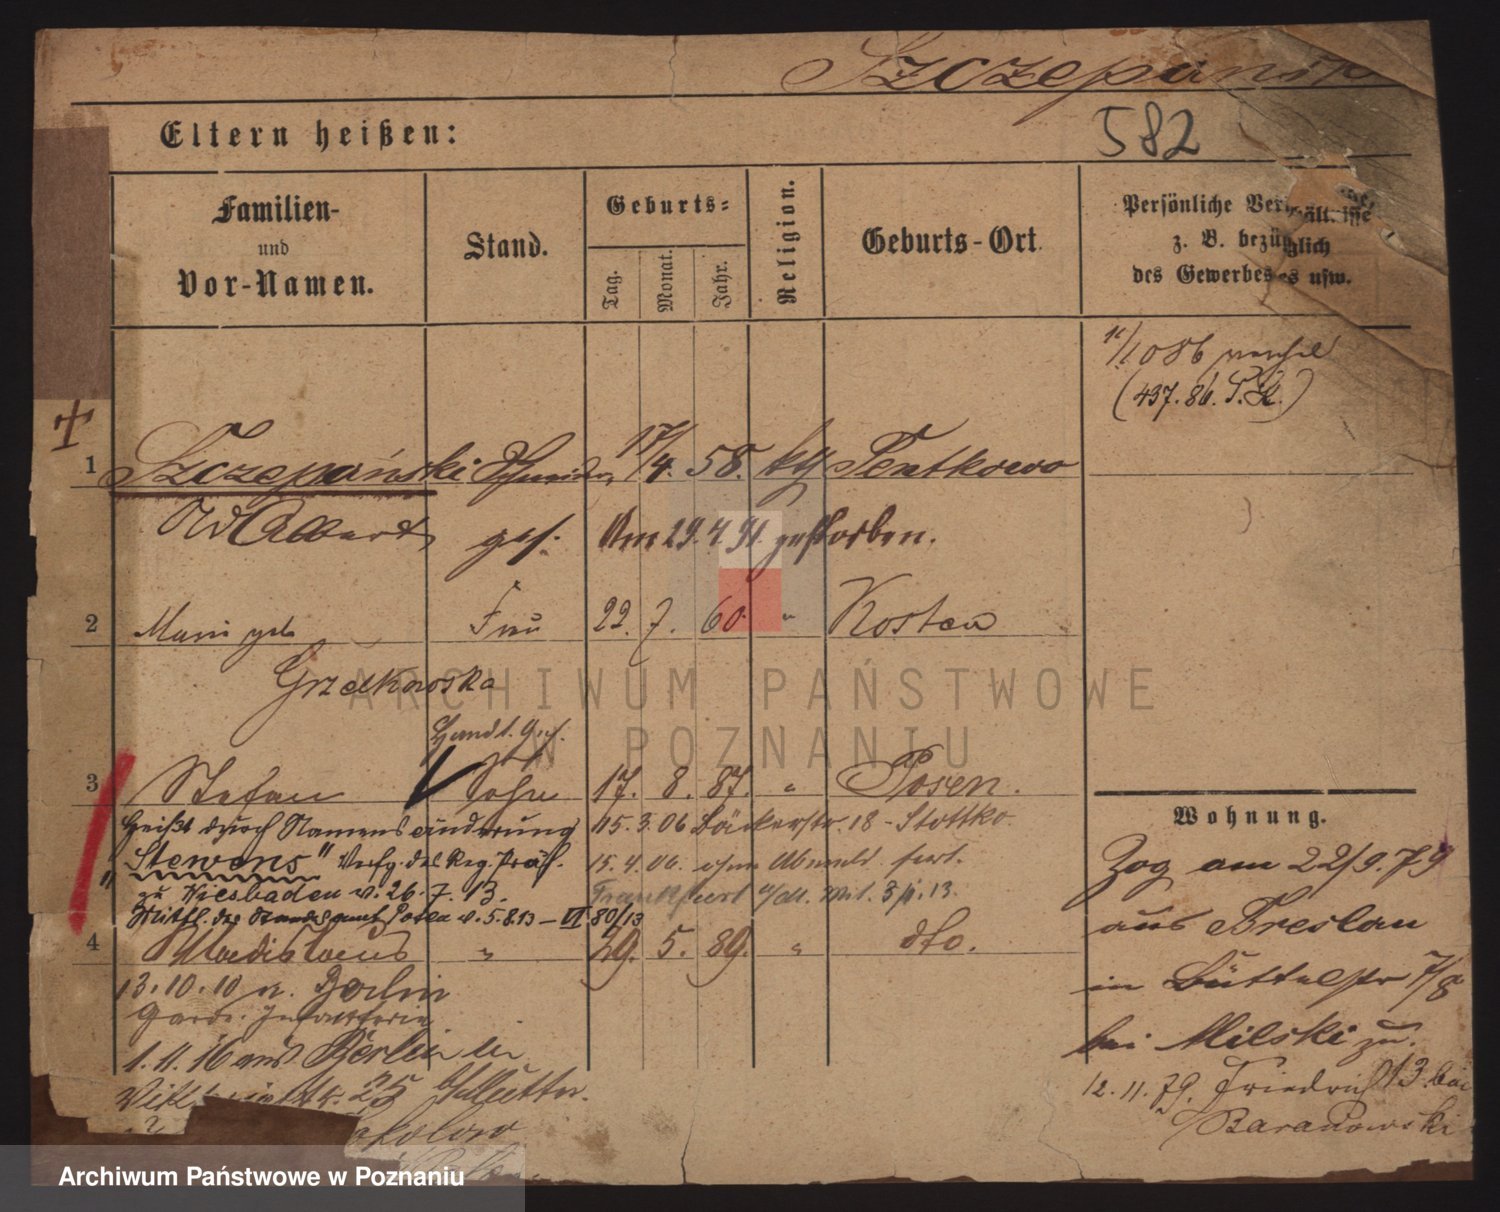 Szczepański
582
Eltern heißen:
Familien-
und
Vor-Namen.
Stand.
Geburts-
Tag.
Monat.
Jahr.
Religion.
Geburts-Ort
Persönliche Verhältnisse,
z. B. bezüglich
des Gewerbes usw.
(437. 86. P. R.)
1 Szczepański Schneider 17/4. 58. kth
Albert ges. Am 29.4.91. gestorben.
2 Marie geb. Frau 22. 7. 60. " Kosten
Grzelkowska
Handl. Geh.
3 Stefan Sohn 17. 8. 87. " Posen.
heißt durch Namensänderung 15.3.06 Bäckerstr. 18 - Stottko
"Stewens" Verfg. des Reg. Präs. 15.4.06. ohne Abmeld. fort.
zu Wiesbaden v. 26.7.13. Frankfurt a/M.
Mittl. des Standesamt Posen v. 5.8.13 - VI 80/13
4 Wladislaus " 29. 5. 89. " dto.
13.10.10 n. Berlin
Garde. Infanterie
1.11.16 aus Berlin in
25 b/Mutter.
Wohnung.
Zog am 22/9.79
aus Breslau
in Büttelstr 7/8
bei Milski zu.
12.11.79. Friedrichst 13 bei
Baranowski
ARCHIWUM PAŃSTWOWE
W POZNANIU
Archiwum Państwowe w Poznaniu